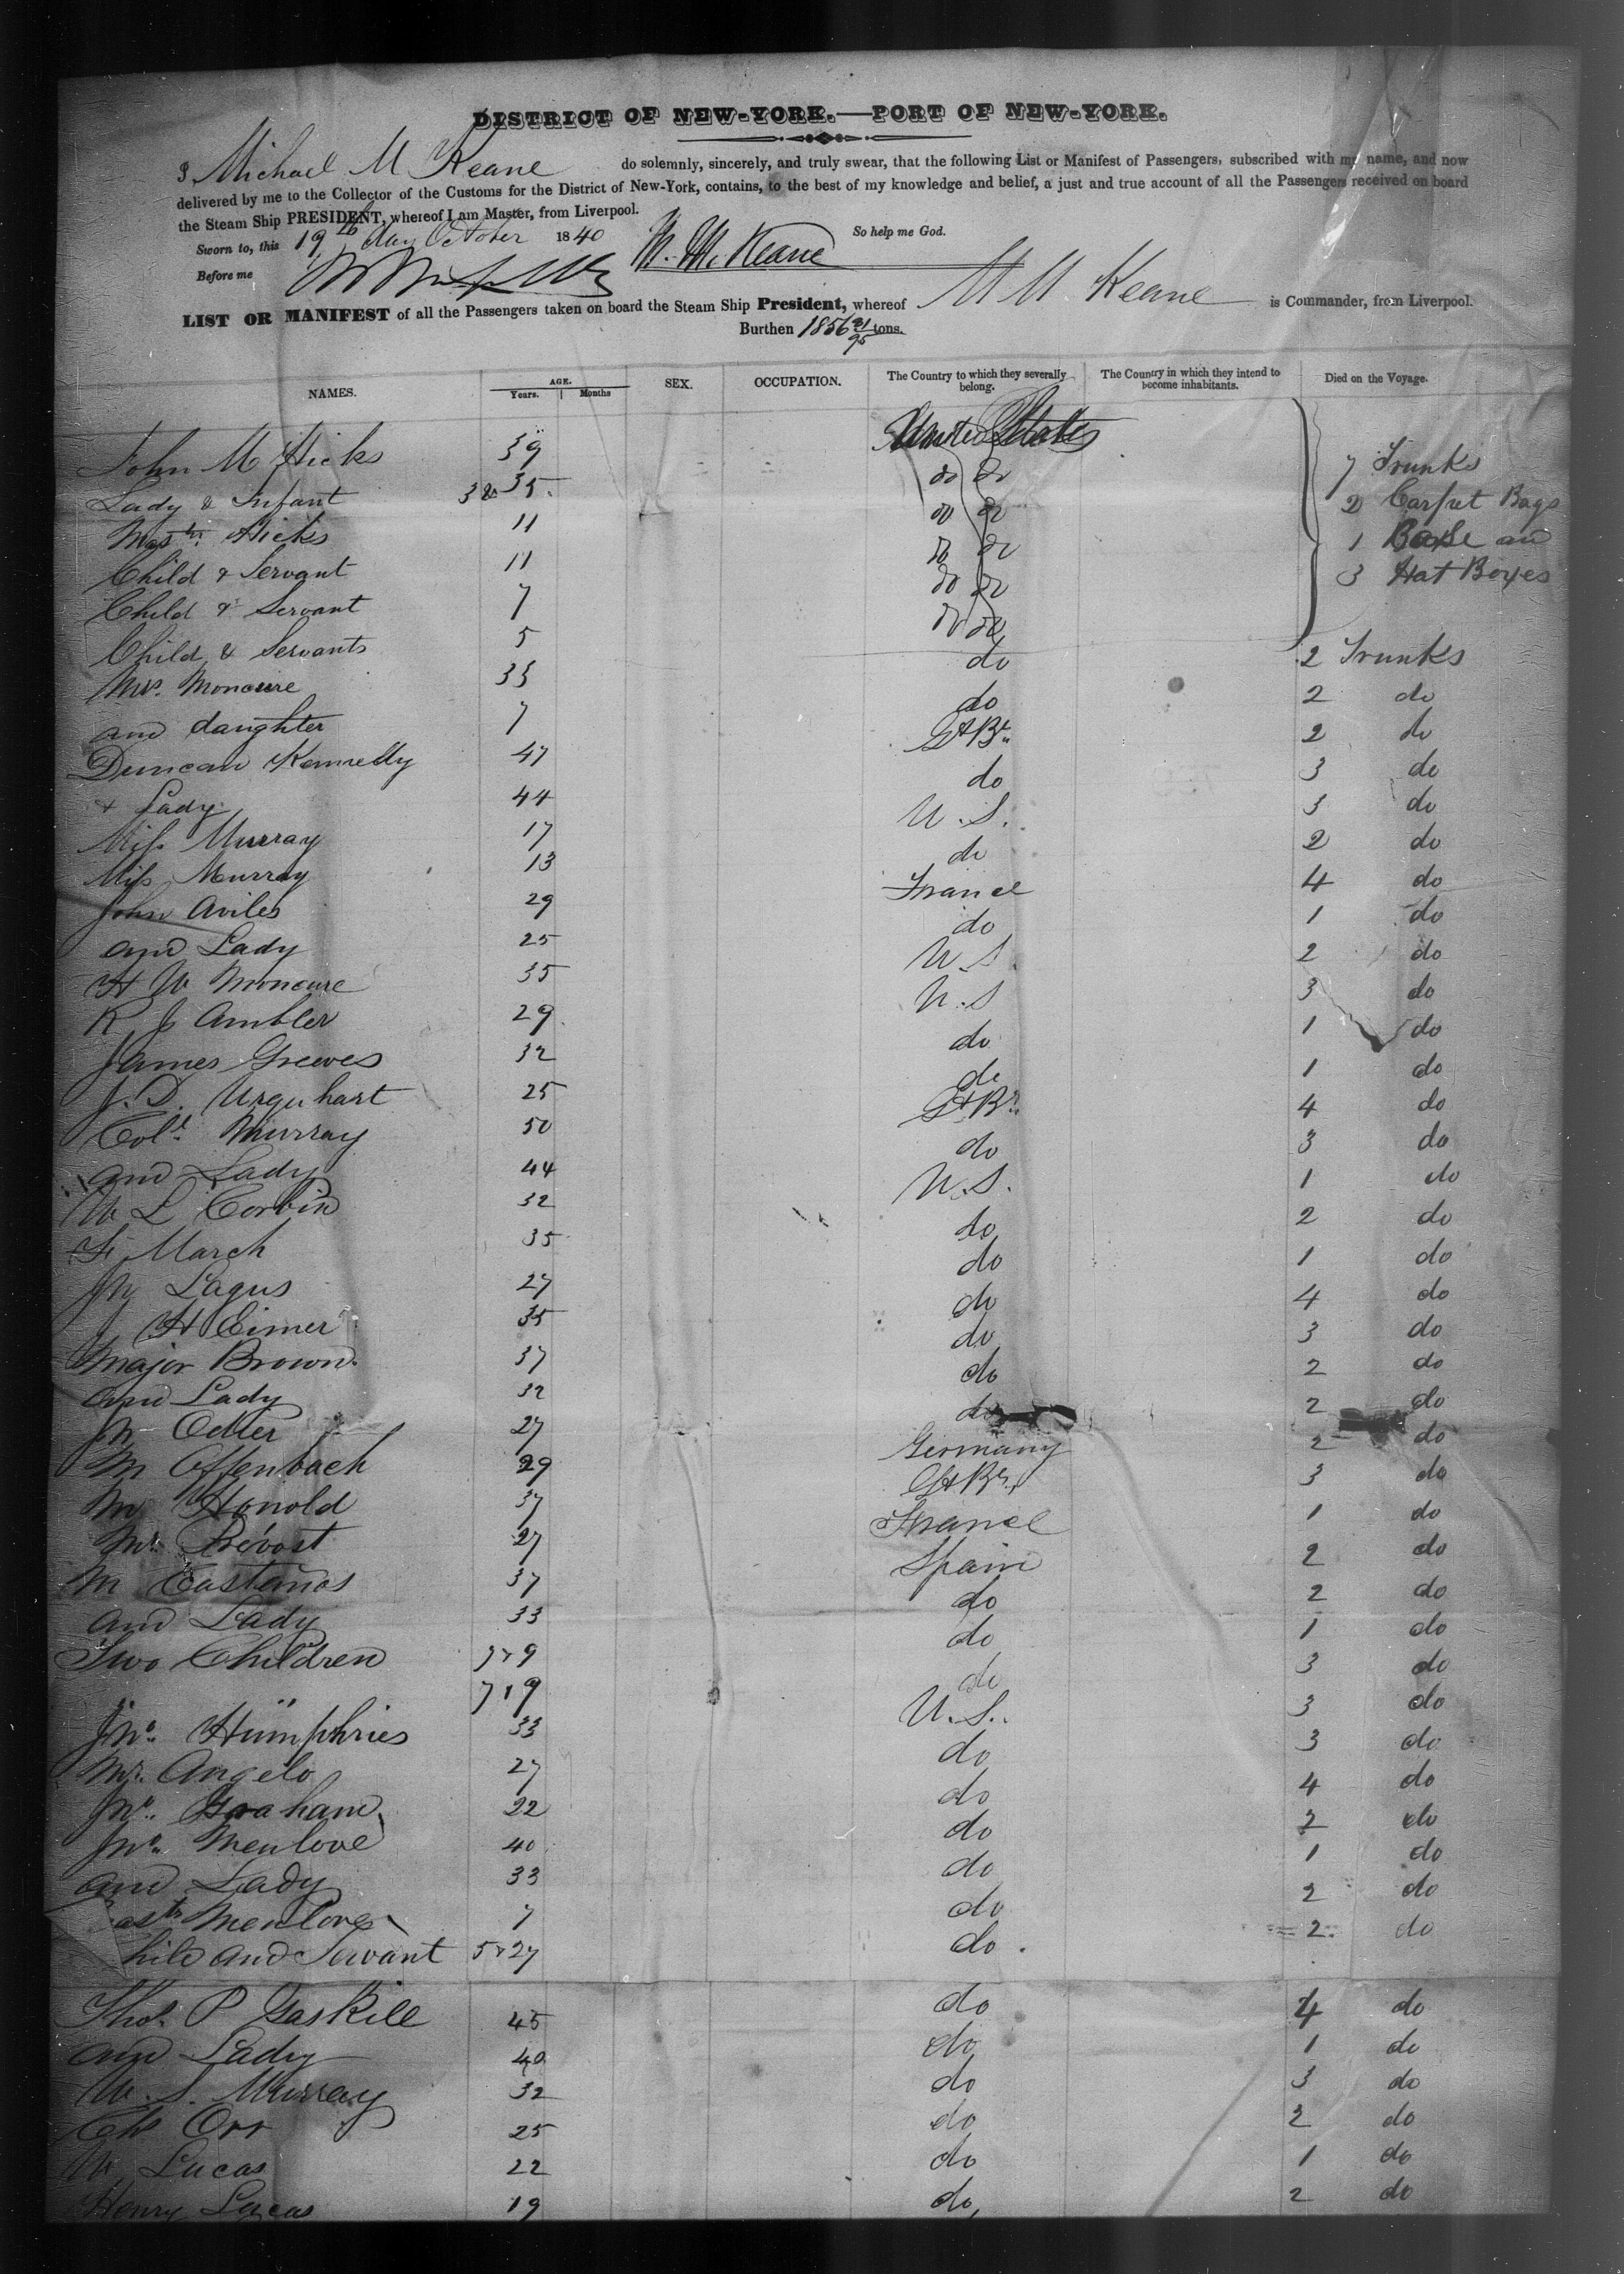 DISTRICT OF NEW-YORK.—PORT OF NEW-YORK.
I Michael M Keane do solemnly, sincerely, and truly swear, that the following List or Manifest of Passengers, subscribed with my name, and now
delivered by me to the Collector of the Customs for the District of New-York, contains, to the best of my knowledge and belief, a just and true account of all the Passengers received on board
the Steam Ship PRESIDENT, whereof I am Master, from Liverpool.
Sworn to, this 19th day October 1840 M. M. Keane So help me God.
Before me
LIST OR MANIFEST of all the Passengers taken on board the Steam Ship President, whereof M M Keane is Commander, from Liverpool.
Burthen 1856 21/95 tons.
NAMES. AGE. Years. Months SEX. OCCUPATION. The Country to which they severally belong. The Country in which they intend to become inhabitants. Died on the Voyage.
John M Hicks 39 United States 7 Trunks
Lady & Infant 35 do do 2 Carpet Bags
Mastr. Hicks 11 do do 1 an
Child & Servant 11 do do 3 Hat Boxes
Child & Servant 7 do do
Child & Servants 5 do do
Mrs. Moncure 33 do 2 Trunks
and daughter 7 do 2 do
Duncan Kennedy 47 Gt Br. 2 do
& Lady 44 do 3 do
Miss Murray 17 U.S. 3 do
Miss Murray 13 do 2 do
John Aviles 29 France 4 do
and Lady 25 do 1 do
H W Moncure 35 U.S. 2 do
R J Ambler 29 U.S 3 do
James Greeves 32 do 1 do
J. D. Urquhart 25 do 1 do
Coll. Murray 50 Gt Br. 4 do
and Lady 44 do 3 do
W L Corbin 32 U.S. 1 do
March 35 do 2 do
Lagus 27 do 1 do
J H Eimer 35 do 4 do
Major Brown 37 do 3 do
and Lady 32 do 2 do
27 do 2 do
M Offenbach 29 Germany 2 do
M Honold 37 Gt Br. 3 do
Mr. Prévost 27 France 1 do
M Castaños 37 Spain 2 do
and Lady 33 do 2 do
Two Children 7 & 9 do 1 do
" " 7 & 9 do 3 do
Jno. Humphries 33 U.S. 3 do
Mr. Angelo 27 do 3 do
Jno. Graham 22 do 4 do
Jno. Menlove 40 do 2 do
and Lady 33 do 1 do
astr Menlove 7 do 2 do
hild and Servant 5 & 27 do 2 do
Thos. P Gaskill 45 do 4 do
and Lady 40 do 1 do
W. S. Murray 32 do 3 do
Chs Orr 25 do 2 do
W Lucas 22 do 1 do
Henry Lucas 19 do 2 do